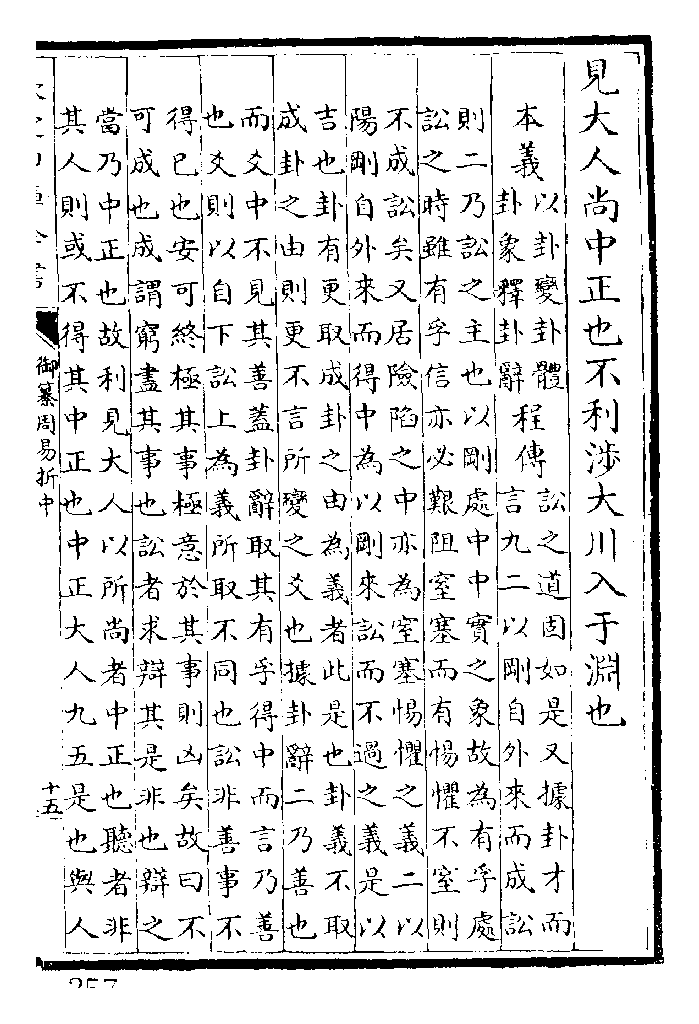 見大人尚中正也不利涉大川入于淵也
本義
以卦變卦體
卦象釋卦辭
程傳
訟之道固如是又據卦才而
言九二以剛自外來而成訟
則二乃訟之主也以剛處中中實之象故為有孚處
訟之時雖有孚信亦必艱阻窒塞而有惕懼不窒則
不成訟矣又居險陷之中亦為窒塞惕懼之義二以
陽剛自外來而得中為以剛來訟而不過之義是以
吉也卦有更取成卦之由為義者此是也卦義不取
成卦之由則更不言所變之爻也據卦辭二乃善也
而爻中不見其善蓋卦辭取其有孚得中而言乃善
也爻則以自下訟上為義所取不同也訟非善事不
得已也安可終極其事極意於其事則凶矣故曰不
可成也成謂窮盡其事也訟者求辯其是非也辯之
當乃中正也故利見大人以所尚者中正也聽者非
其人則或不得其中正也中正大人九五是也與人
御纂周易折中
十五